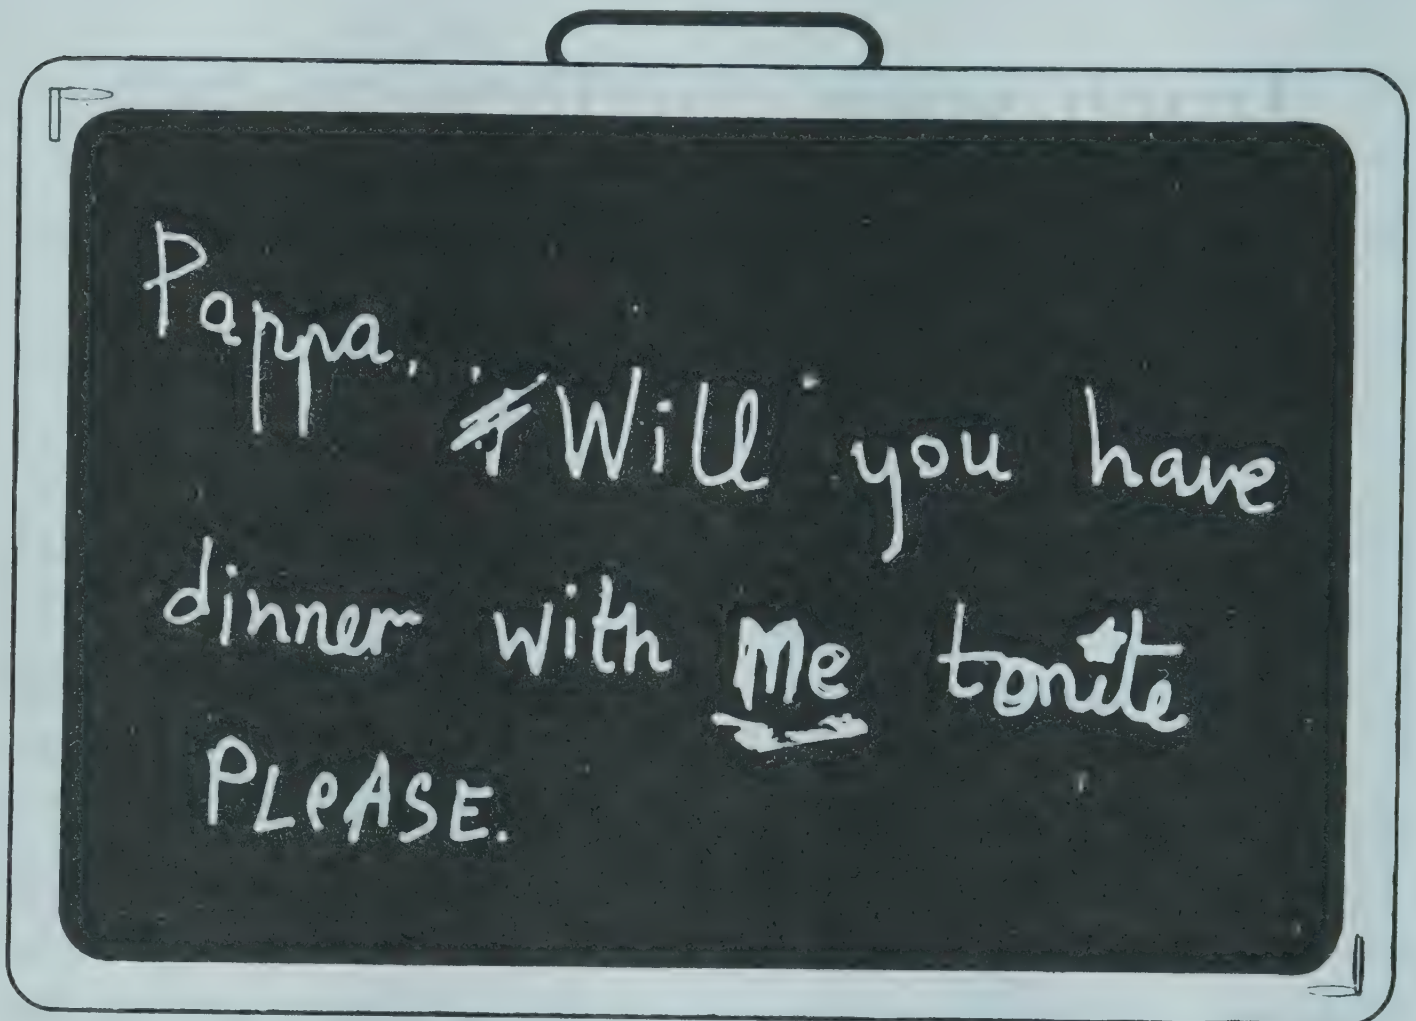 Pappa,
Will you have
dinner with Me tonite
PLeASE.